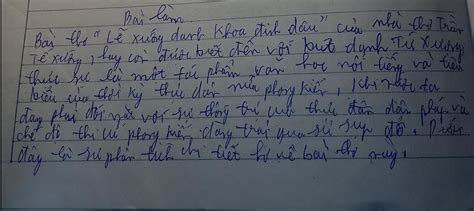 Bài làm
Bài thơ "Lễ xướng danh khoa đinh dậu" của nhà thơ Trần
Tế xướng, hay còn được biết đến với bút danh Tú Xương
thực sự là một tác phẩm văn học nổi tiếng và tiêu
biểu của thời kỳ thực dân nửa phong kiến, khi nước ta
đang phải đối mặt với sự thống trị của thực dân dân pháp và
chế độ thi cử phong kiến đang trải qua sự sụp đổ. Dưới
đây là sự phân tích chi tiết hơ về bài thơ này.